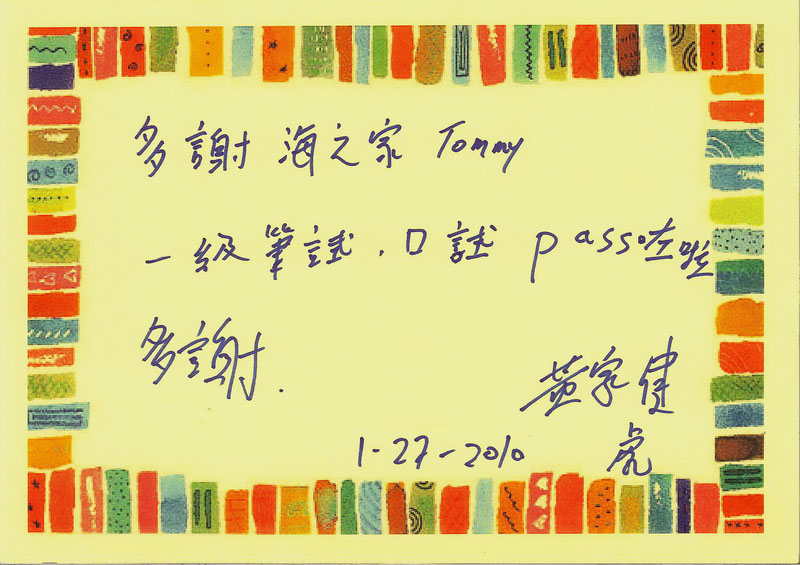 多謝 海之家 Tommy
一级筆試,口試 pass咗啦
多謝.
黄家健
1-27-2010